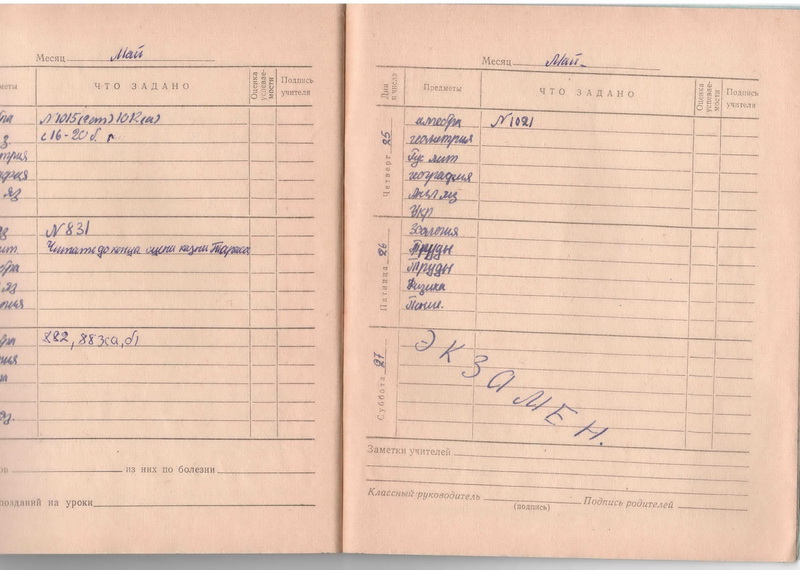 Месяц Май
меты ЧТО ЗАДАНО Оценка успевае- мости Подпись учителя
N1015
с 16-20 б. г.
яз
N 831
Читать до конца сцена казни Тараса
яз
882, 883(а,б)
из них по болезни
позданий на уроки
Месяц Май
Дни и число Предметы ЧТО ЗАДАНО Оценка успевае- мости Подпись учителя
Четверг 25
алгебра N1021
геометрия
Рус лит
география
Англ яз
Укр
Пятница 26
Зоология
Труды
Труды
Физика
Суббота 27
ЭКЗАМЕН.
Заметки учителей
Классный руководитель Подпись родителей
(подпись)